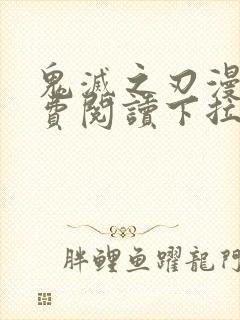 鬼滅之刃漫
費閱讀下拉
胖鲤鱼躍龍門